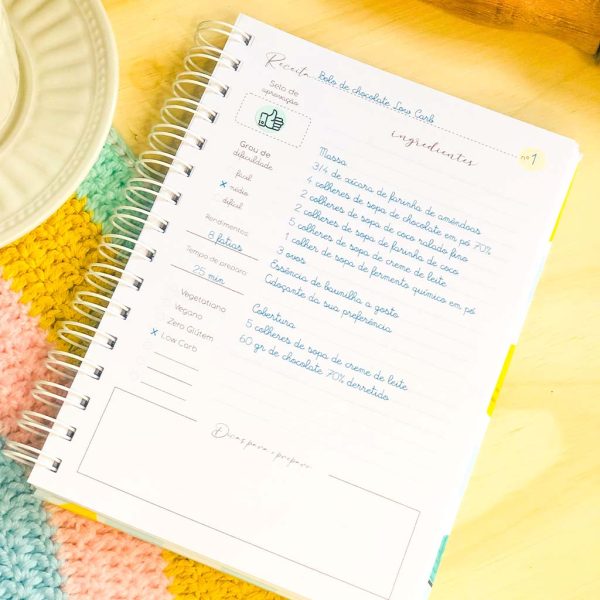 Receita Bolo de chocolate Low Carb
nº 1
Selo de
aprovação
Grau de
dificuldade
fácil
x médio
difícil
Rendimentos
8 fatias
Tempo de preparo
25 min
Vegetariano
Vegano
Zero Glúten
x Low Carb
ingredientes
Massa
3/4 de xícara de farinha de amêndoas
4 colheres de sopa de chocolate em pó 70%
2 colheres de sopa de coco ralado fino
2 colheres de sopa de farinha de coco
5 colheres de sopa de creme de leite
1 colher de sopa de fermento químico em pó
3 ovos
Essência de baunilha a gosto
Adoçante da sua preferência
Cobertura
5 colheres de sopa de creme de leite
60 gr de chocolate 70% derretido
Dicas para o preparo